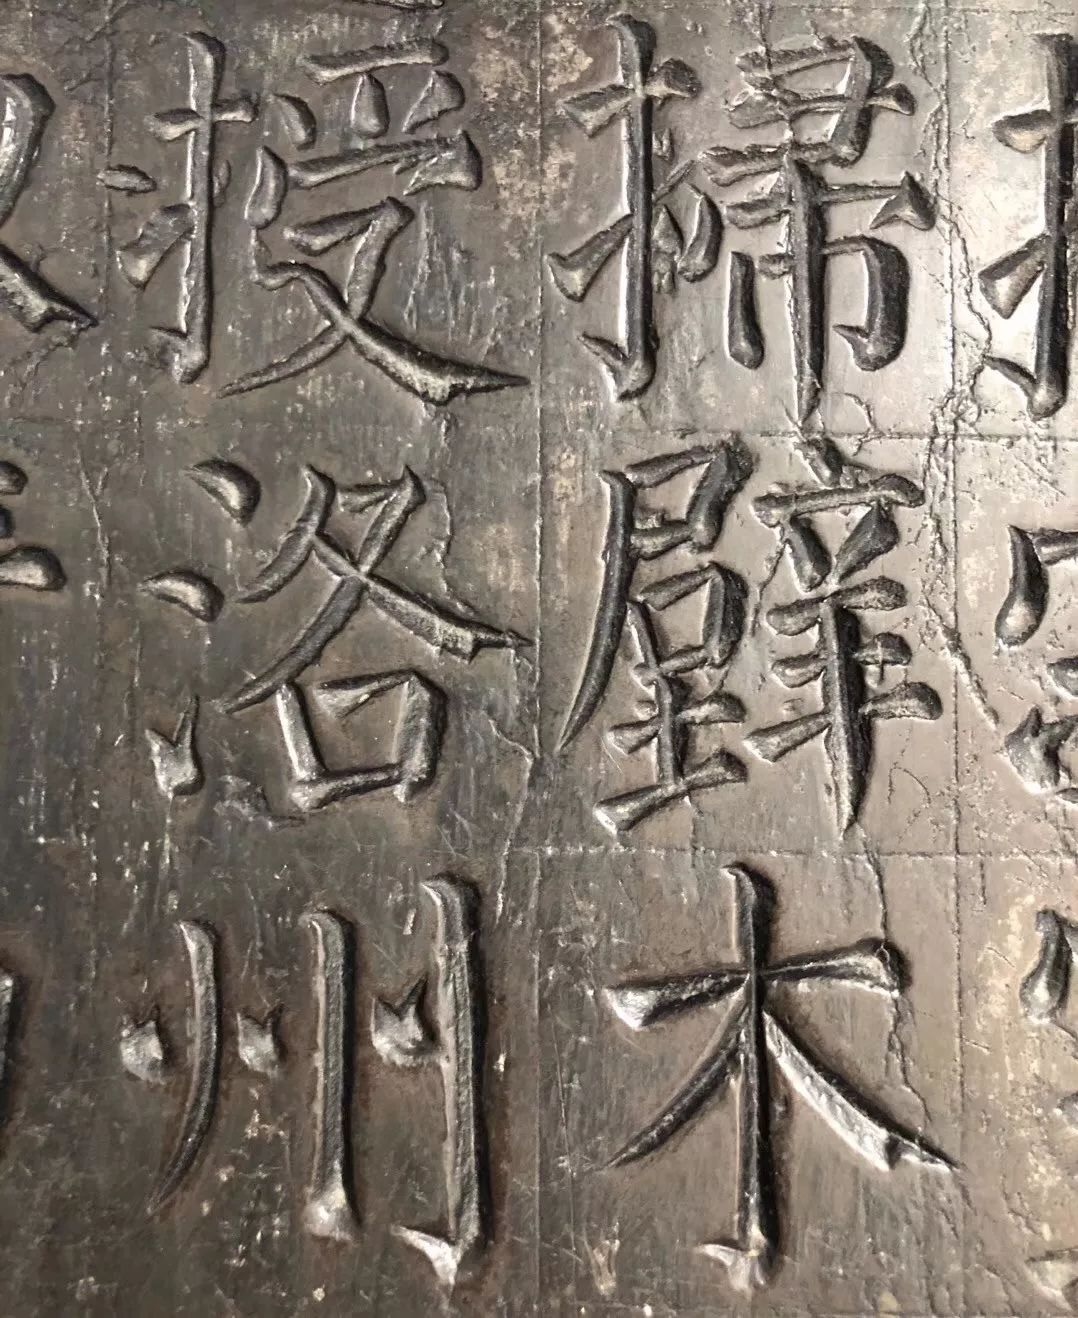 掃壁木
授洛州